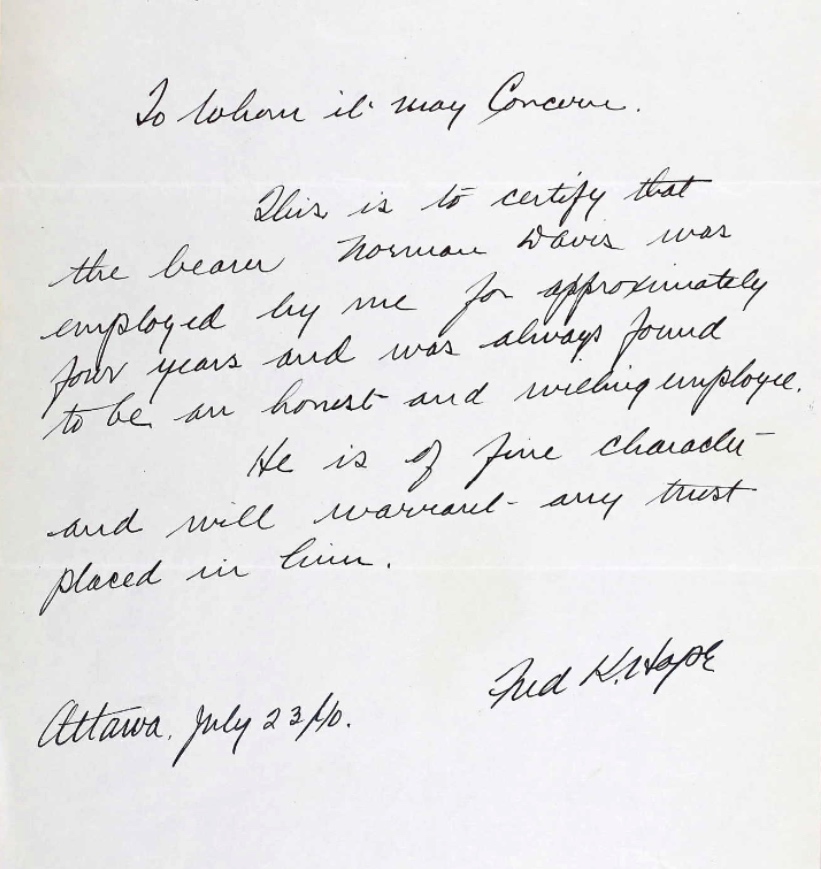 To Whom it may Concern.
This is to certify that
the bearer Norman Davis was
employed by me for approximately
four years and was always found
to be an honest and willing employee.
He is of fine character
and will warrant any trust
placed in him.
Fred K. Hope
Ottawa, July 23/40.